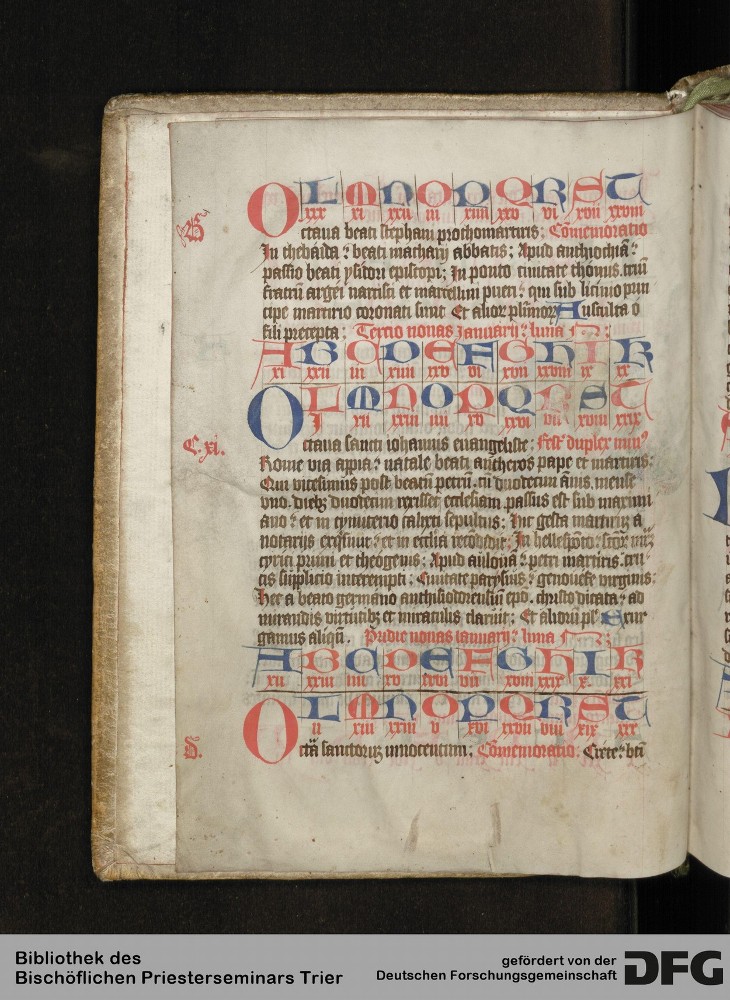 L M N O P Q R S T
xxx xi xxii iii xiiii xxv vi xvii xxviii
B
Octaua beati stephani prothomartiris: Cōmemoratio
In thebaida: beati macharij abbatis: Apud anthiochiā:
passio beati ysidori episcopi: In ponto ciuitate thomis. triū
fratrū argei narcisci et marcellini pueri: qui sub licinio prin
cipe martirio coronati sunt Et alior plimor Ausculta o
fili precepta: Tercio nonas Januarij: luna
A B C D E F G H I K
xi xxii iii xiiii xxv vi xvii xxviii ix xx
L M N O P Q R S T
i xii xxiii iiii xv xxvi vii xviii xxix
C. xi.
Octaua sancti iohannis euangeliste: fest duplex min
Rome via appia: natale beati antheros pape et martiris:
Qui vicesimus post beatū petrū. cū duodecim ānis. mense
vno. diebz duodecim rexisset ecclesiam. passus est sub maximi
ano: et in cymiterio calixti sepultus: Hic gesta martirū a
notarijs exqsiuit: et in ecclia recōdidit: In hellespōto:
cyrici primi et theogenis: Apud aulonā: petri martiris. cru
cis supplicio interempti: Ciuitate parysius: genouefe virginis:
Hec a beato germano anthisiodorensium epo. christo dicata: ad
mirandis virtutibz et miraculis claruit: Et aliorū pl Exur
gamus aliqn. Pridie nonas ianuarij: luna
A B C D E F G H I K
xii xxiii iiii xv xxvi vii xviii xxix x xxi
L M N O P Q R S T
ii xiii xxiiii v xvi xxvii viii xix xxx
D.
Octā sanctorum innocentum: Cōmemoratio: Crete: bti
Bibliothek des
Bischöflichen Priesterseminars Trier
gefördert von der
Deutschen Forschungsgemeinschaft
DFG